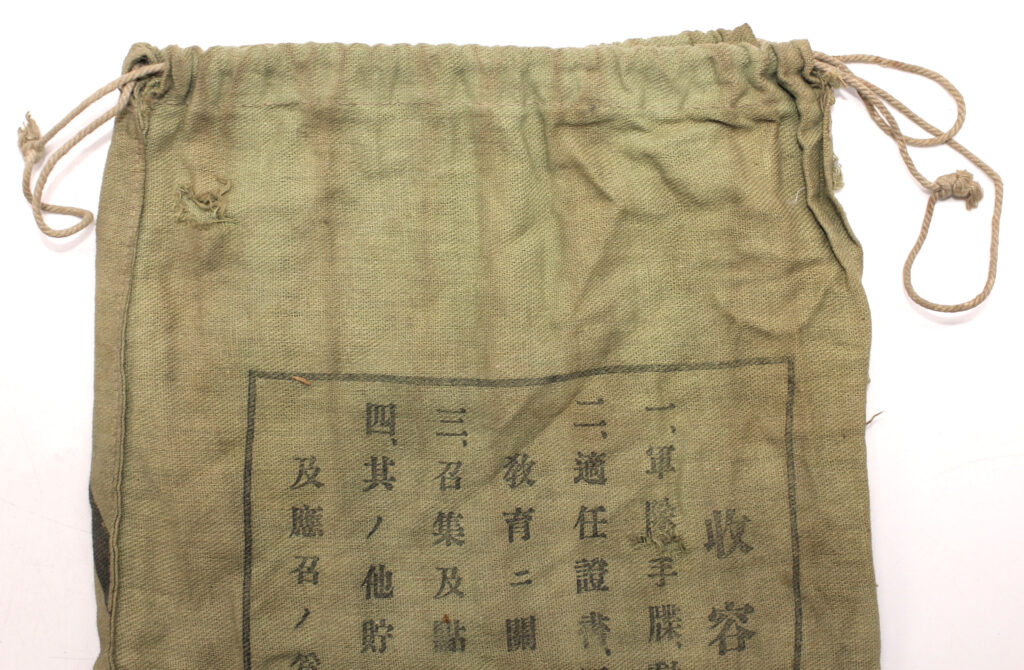 收容
一、軍隊手牒、
二、適任證書、
敎育ニ關
三、召集及點
四、其ノ他貯
及應召ノ